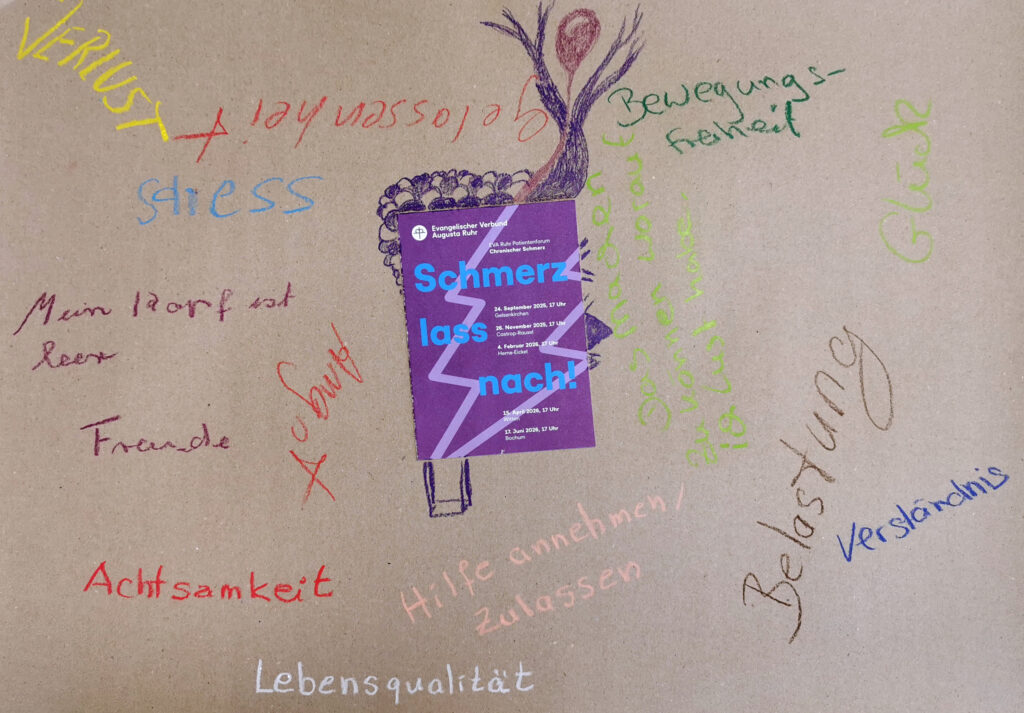 VERLUST
gelassenheit
Bewegungs-
freiheit
Glück
Stress
Das machen
zu können worauf
ich Lust habe
Evangelischer Verbund
Augusta Ruhr
EVA Ruhr Patientenforum
Chronischer Schmerz
Schmerz
lass
nach!
24. September 2025, 17 Uhr
Gelsenkirchen
26. November 2025, 17 Uhr
Castrop-Rauxel
4. Februar 2026, 17 Uhr
Herne-Eickel
15. April 2026, 17 Uhr
Witten
17. Juni 2026, 17 Uhr
Bochum
Mein Kopf ist
leer
Angst
Freude
Belastung
Verständnis
Achtsamkeit
Hilfe annehmen/
zulassen
Lebensqualität